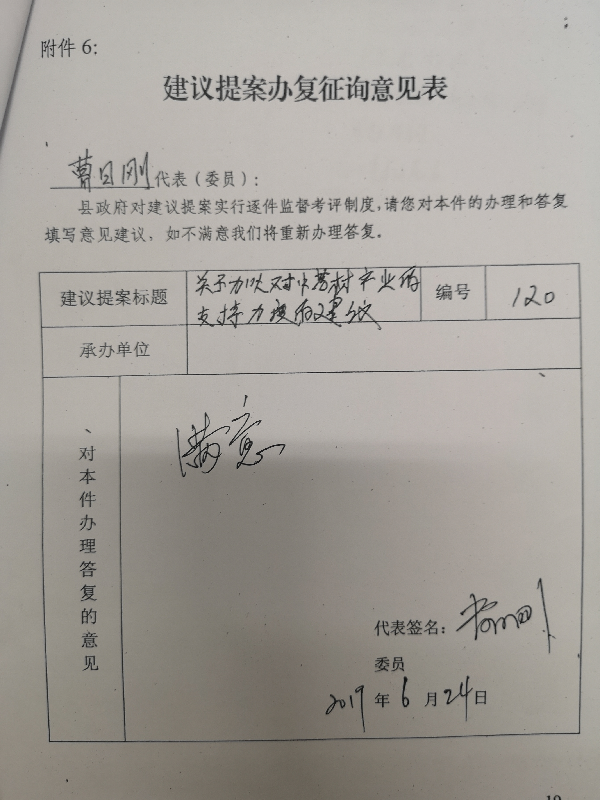 附件 6：
建议提案办复征询意见表
曹日刚代表（委员）：
县政府对建议提案实行逐件监督考评制度,请您对本件的办理和答复
填写意见建议，如不满意我们将重新办理答复。
建议提案标题
关于加大对中药材产业的
支持力度的建议
编号
120
承办单位
对本件办理答复的意见
满意
代表签名：
委员
2019 年 6 月 24 日